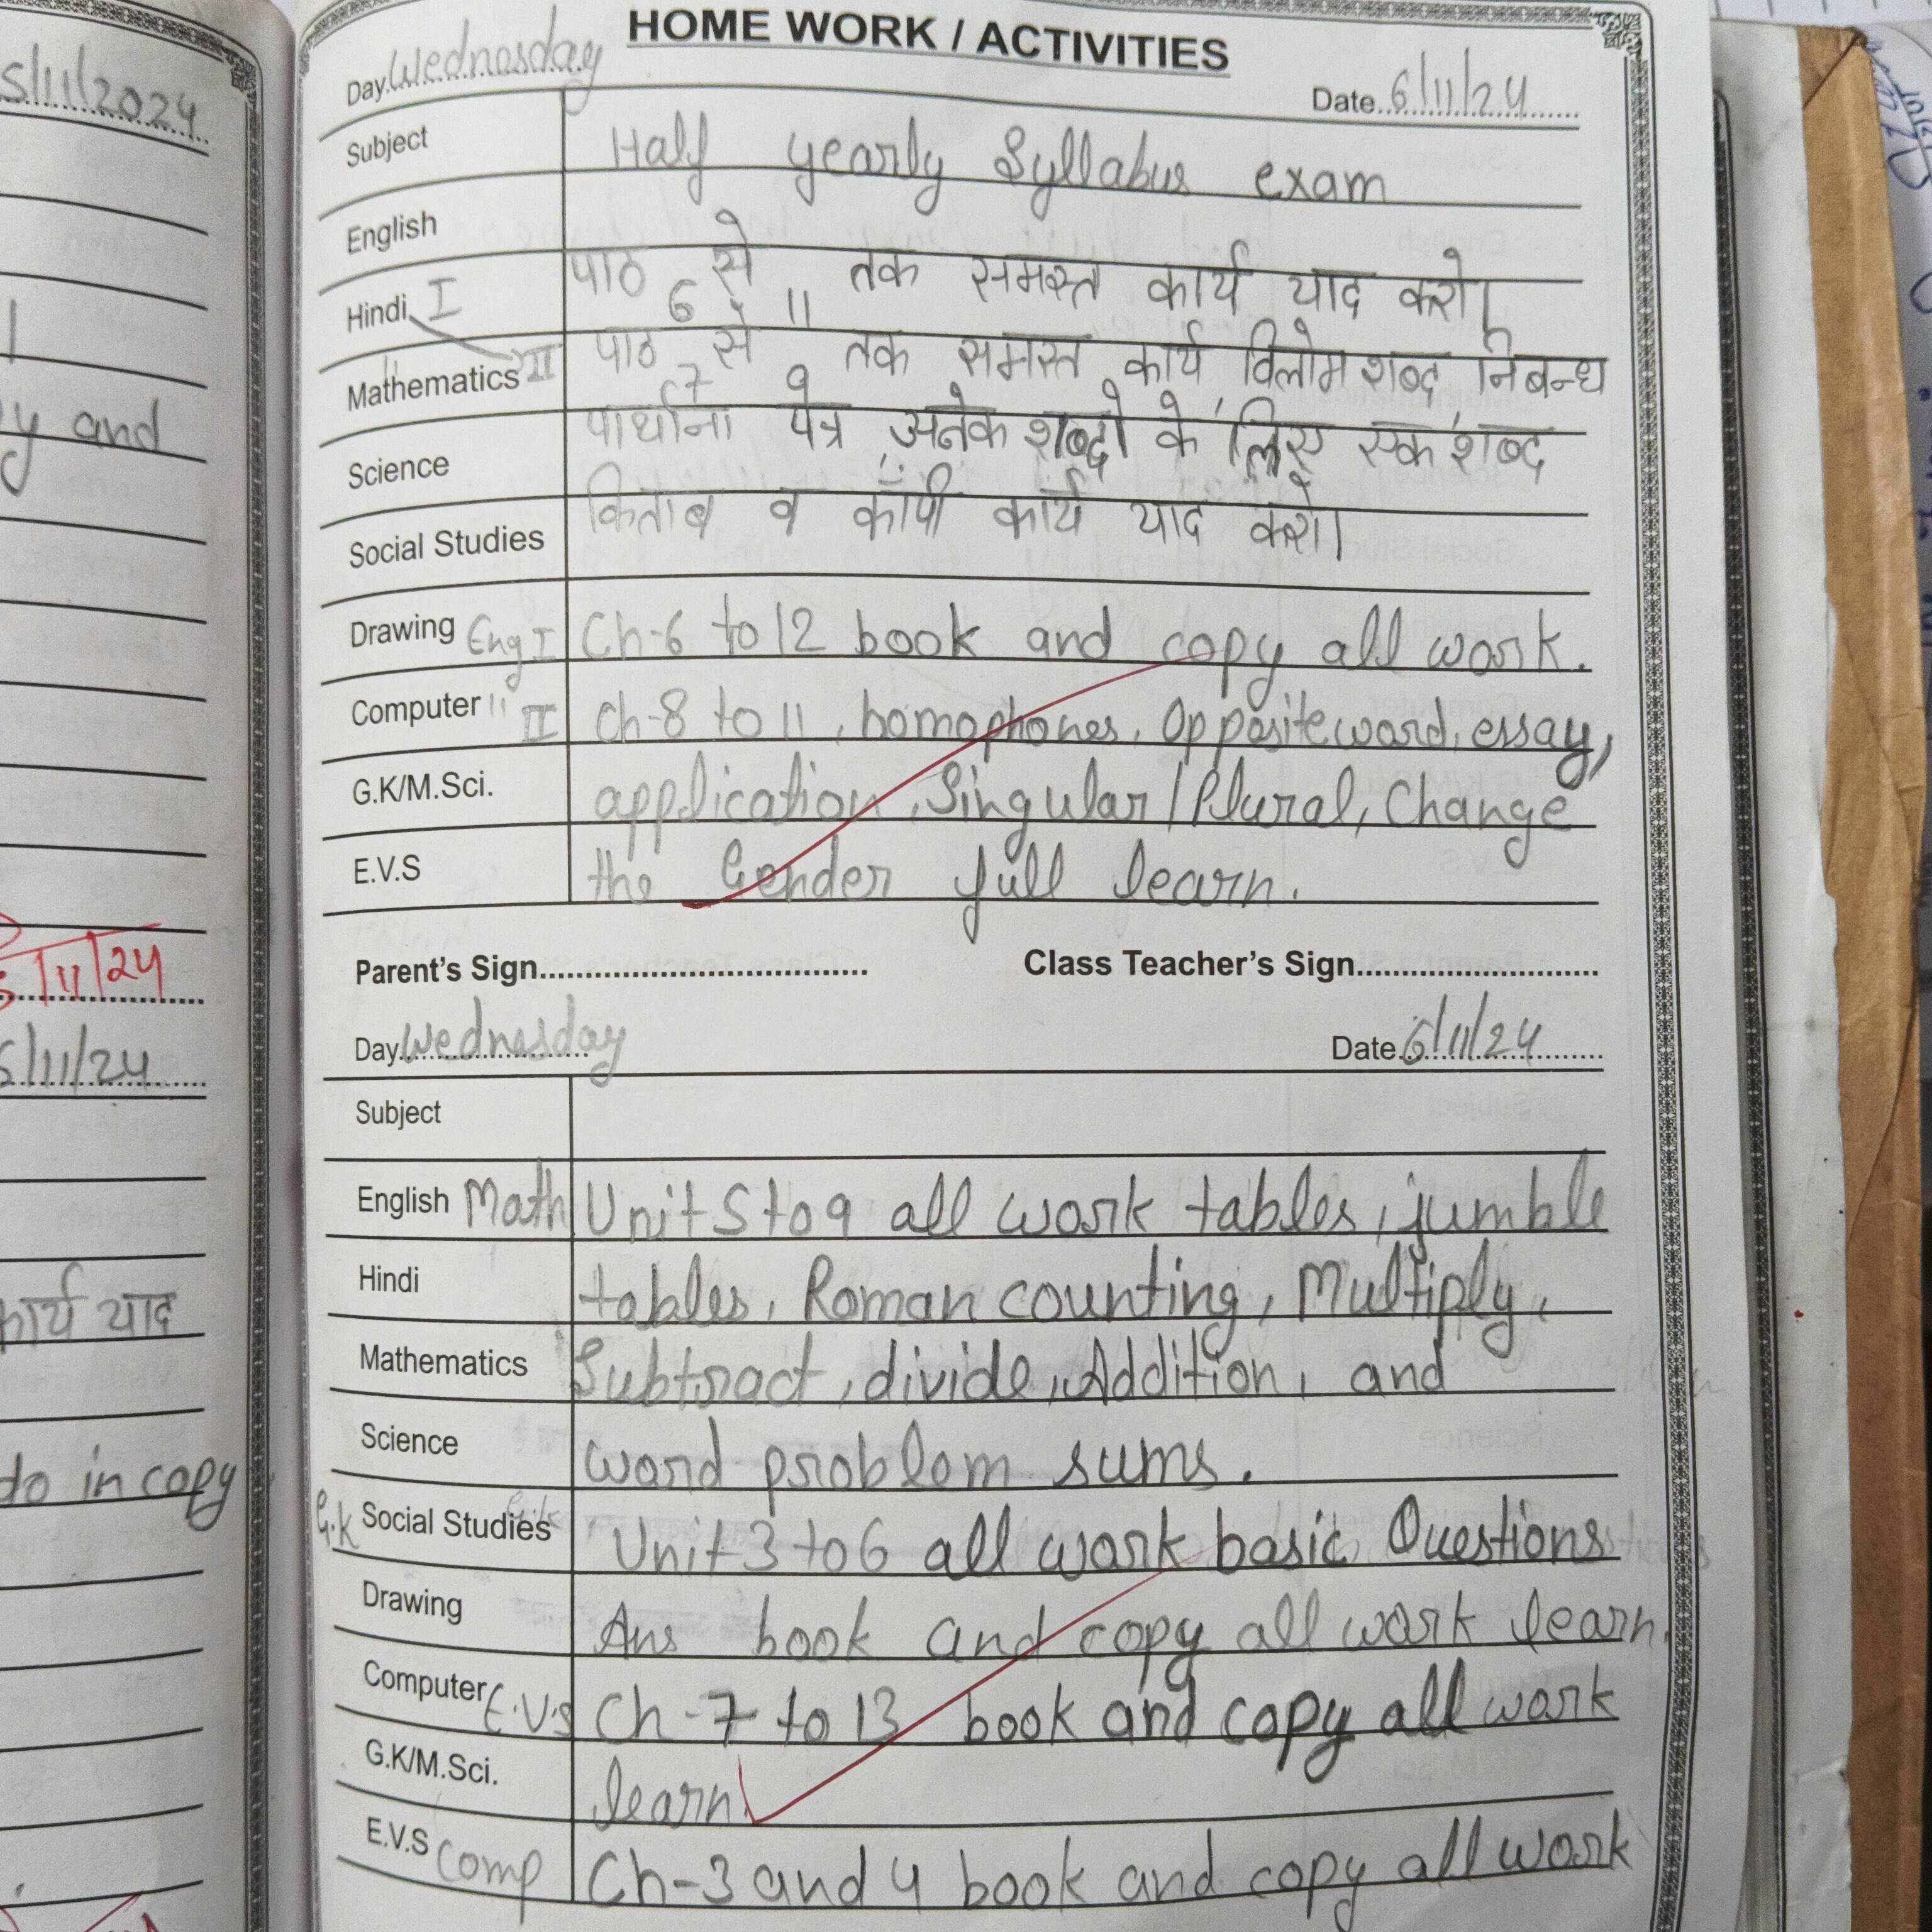 HOME WORK / ACTIVITIES
Day Wednesday Date 6/11/24
Subject Half yearly Syllabus exam
English
Hindi I पाठ 6 से 11 तक समस्त कार्य याद करो।
Mathematics II पाठ 7 से 9 तक समस्त कार्य, विलोम शब्द, निबन्ध
Science पत्र, अनेक शब्दो के लिए एक शब्द
Social Studies किताब व कॉपी कार्य याद करो।
Drawing Eng I Ch-6 to 12 book and copy all work.
Computer II Ch-8 to 11, homophones, Opposite word, essay,
G.K/M.Sci. application, Singular/Plural, Change
E.V.S the Gender full learn.
Parent's Sign Class Teacher's Sign
Day Wednesday Date 6/11/24
Subject
English Math Unit 5 to 9 all work tables, jumble
Hindi tables, Roman counting, Multiply,
Mathematics Subtract, divide, Addition, and
Science word problem sums.
G.K Social Studies Unit 3 to 6 all work basic Questions
Drawing Ans book and copy all work learn.
Computer E.V.S Ch-7 to 13 book and copy all work
G.K/M.Sci. learn.
E.V.S Comp Ch-3 and 4 book and copy all work
5/11/2024
y and
/11/24
5/11/24
कार्य याद
do in copy